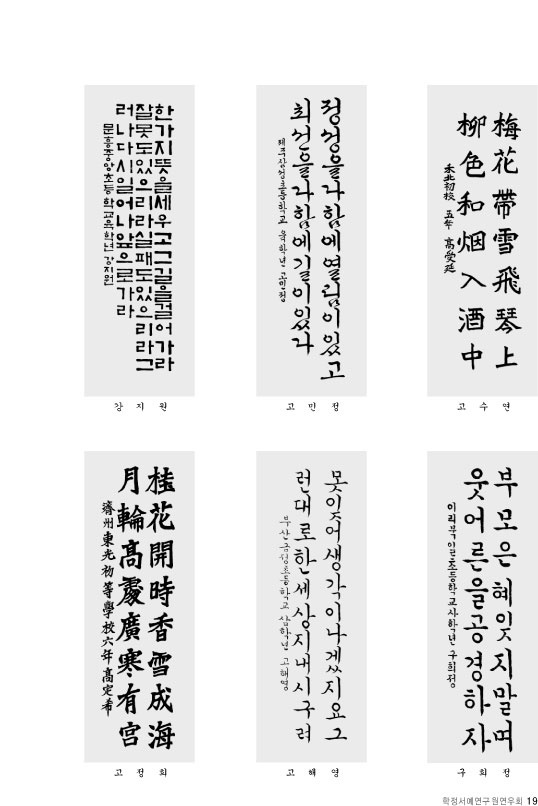 한가지뜻을세우고그길을걸어가라
잘못도있으리라실패도있으리라그
러나다시일어나앞으로가라
문흥중앙초등학교육학년 강지원
강 지 원
정성을다함에열림이있고
최선을다함에길이있다
제주삼성초등학교 육학년 고민정
고 민 정
梅花帶雪飛琴上
柳色和烟入酒中
禾北初校 五年 高受延
고 수 연
桂花開時香雪成海
月輪高處廣寒有宮
濟州東光初等學校六年 高定希
고 정 희
못잊어생각이나겠지요그
런대로한세상지내시구려
부산금정초등학교 삼학년 고해영
고 해 영
부모은혜잊지말며
웃어른을공경하자
이리북일초등학교사학년 구희정
구 희 정
학정서예연구원연우회 19